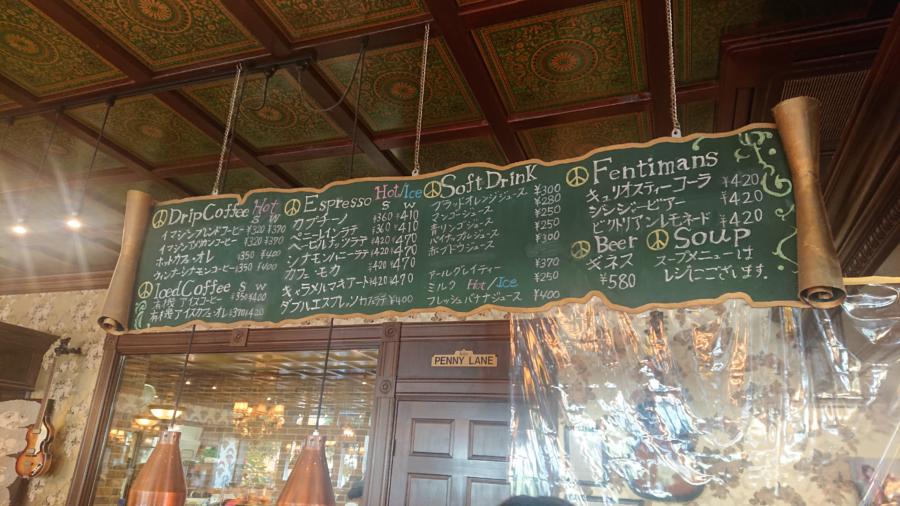 DripCoffee Hot
S W
イマジンブレンドコーヒー ¥320 ¥370
イマジンアメリカンコーヒー ¥320 ¥370
ホットカフェ・オレ ¥350 ¥400
ウィンナーシナモンコーヒー ¥350 ¥400
IcedCoffee S W
有機アイスコーヒー ¥350 ¥400
有機アイスカフェ・オレ ¥370 ¥420
Espresso Hot/Ice
S W
カプチーノ ¥360 ¥410
¥360 ¥410
¥420 ¥470
シナモンハニーラテ ¥420 ¥470
カフェ・モカ ¥420 ¥470
キャラメルマキアート ¥420 ¥470
ダブルエスプレッソカフェラテ ¥400
SoftDrink
ブラッドオレンジジュース ¥300
マンゴージュース ¥280
青リンゴジュース ¥250
パイナップルジュース ¥250
ホットラジュース ¥300
アールグレイティー ¥370
ミルク Hot/Ice ¥250
フレッシュバナナジュース ¥400
Fentimans
キュリオスティーコーラ ¥420
ジンジービアー ¥420
ビクトリアンレモネード ¥420
Beer
ギネス
¥580
Soup
スープメニューは
レジにございます。
PENNY LANE